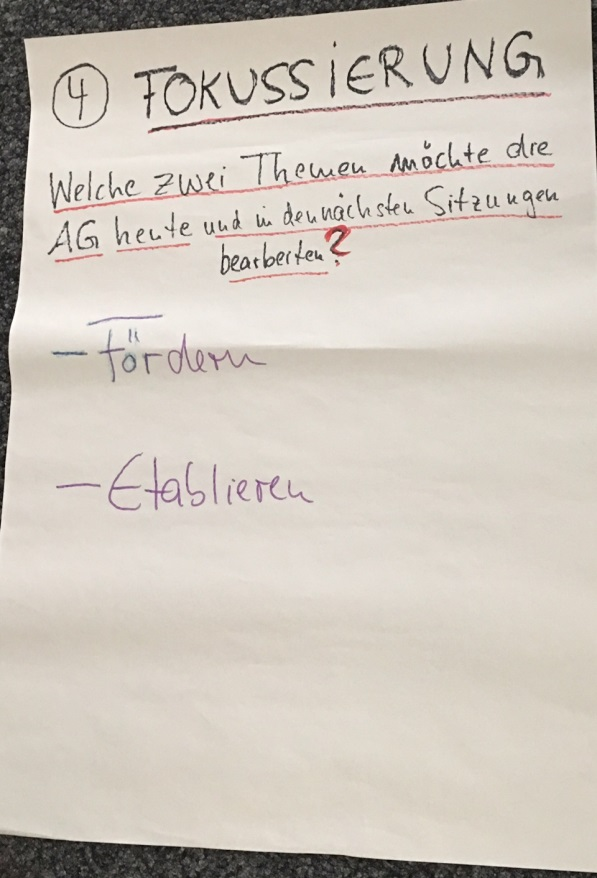 4 FOKUSSIERUNG
Welche zwei Themen möchte die
AG heute und in den nächsten Sitzungen
bearbeiten?
- Fördern
- Etablieren